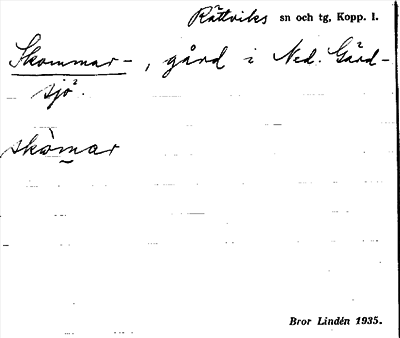 Rättviks sn och tg, Kopp. l.
Skommar-, gård i Ned. Gärd-
sjö.
skòmar
Bror Lindén 1935.